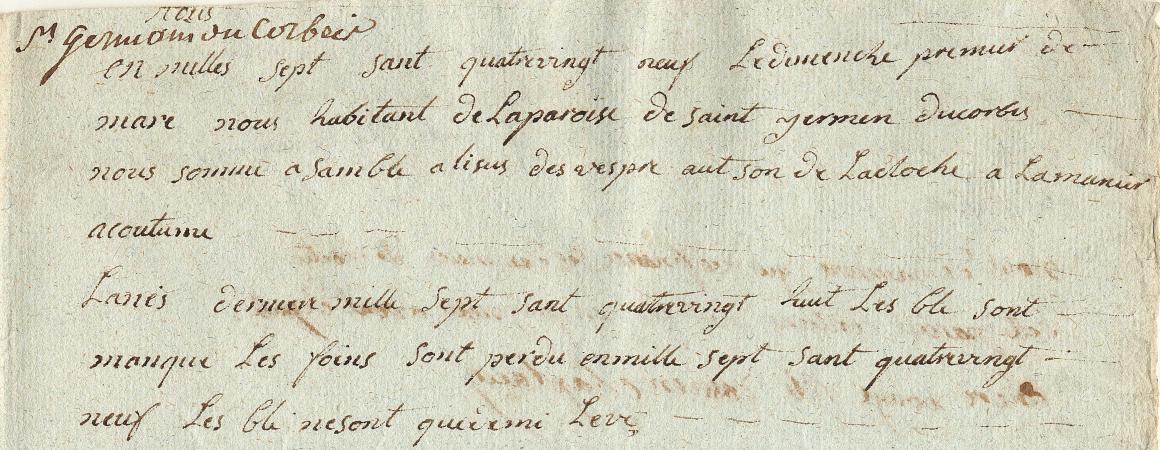 nous
St Germain du Corbeis
en milles sept sant quatrevingt neuf Le dimenche premier de
mare nous habitant de Laparoise de saint germen ducorbis
nous somme asamble alisus des vespre aut son de Lacloche a Lamanier
acoutume
Lanés derniere mille sept sant quatrevingt huit Les ble sont
manque Les foins sont perdu en mille sept sant quatrevingt
neuf Les ble ne sont que demi Leve